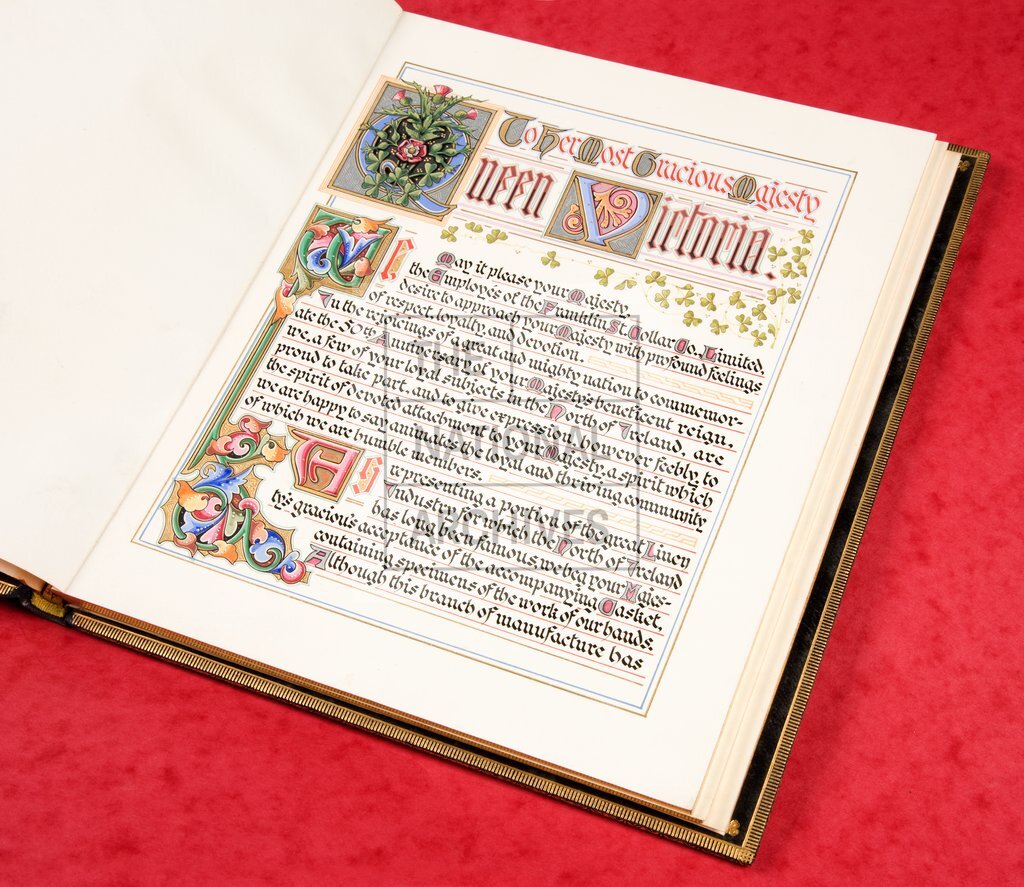 To Her Most Gracious Majesty
Queen Victoria.
May it please your Majesty,
We the Employés of the Franklin St. Collar Co., Limited
desire to approach your Majesty with profound feelings
of respect, loyalty, and devotion.
In the rejoicings of a great and mighty nation to commemor-
ate the 50th Anniversary of your Majesty's beneficent reign,
we, a few of your loyal subjects in the North of Ireland, are
proud to take part, and to give expression, however feebly, to
the spirit of devoted attachment to your Majesty, a spirit which
we are happy to say animates the loyal and thriving community
of which we are humble members.
As representing a portion of the great Linen
Industry, for which the North of Ireland
has long been famous, we beg your Majes-
ty's gracious acceptance of the accompanying Casket,
containing specimens of the work of our hands.
Although this branch of manufacture has
THE
NATIONAL
ARCHIVES